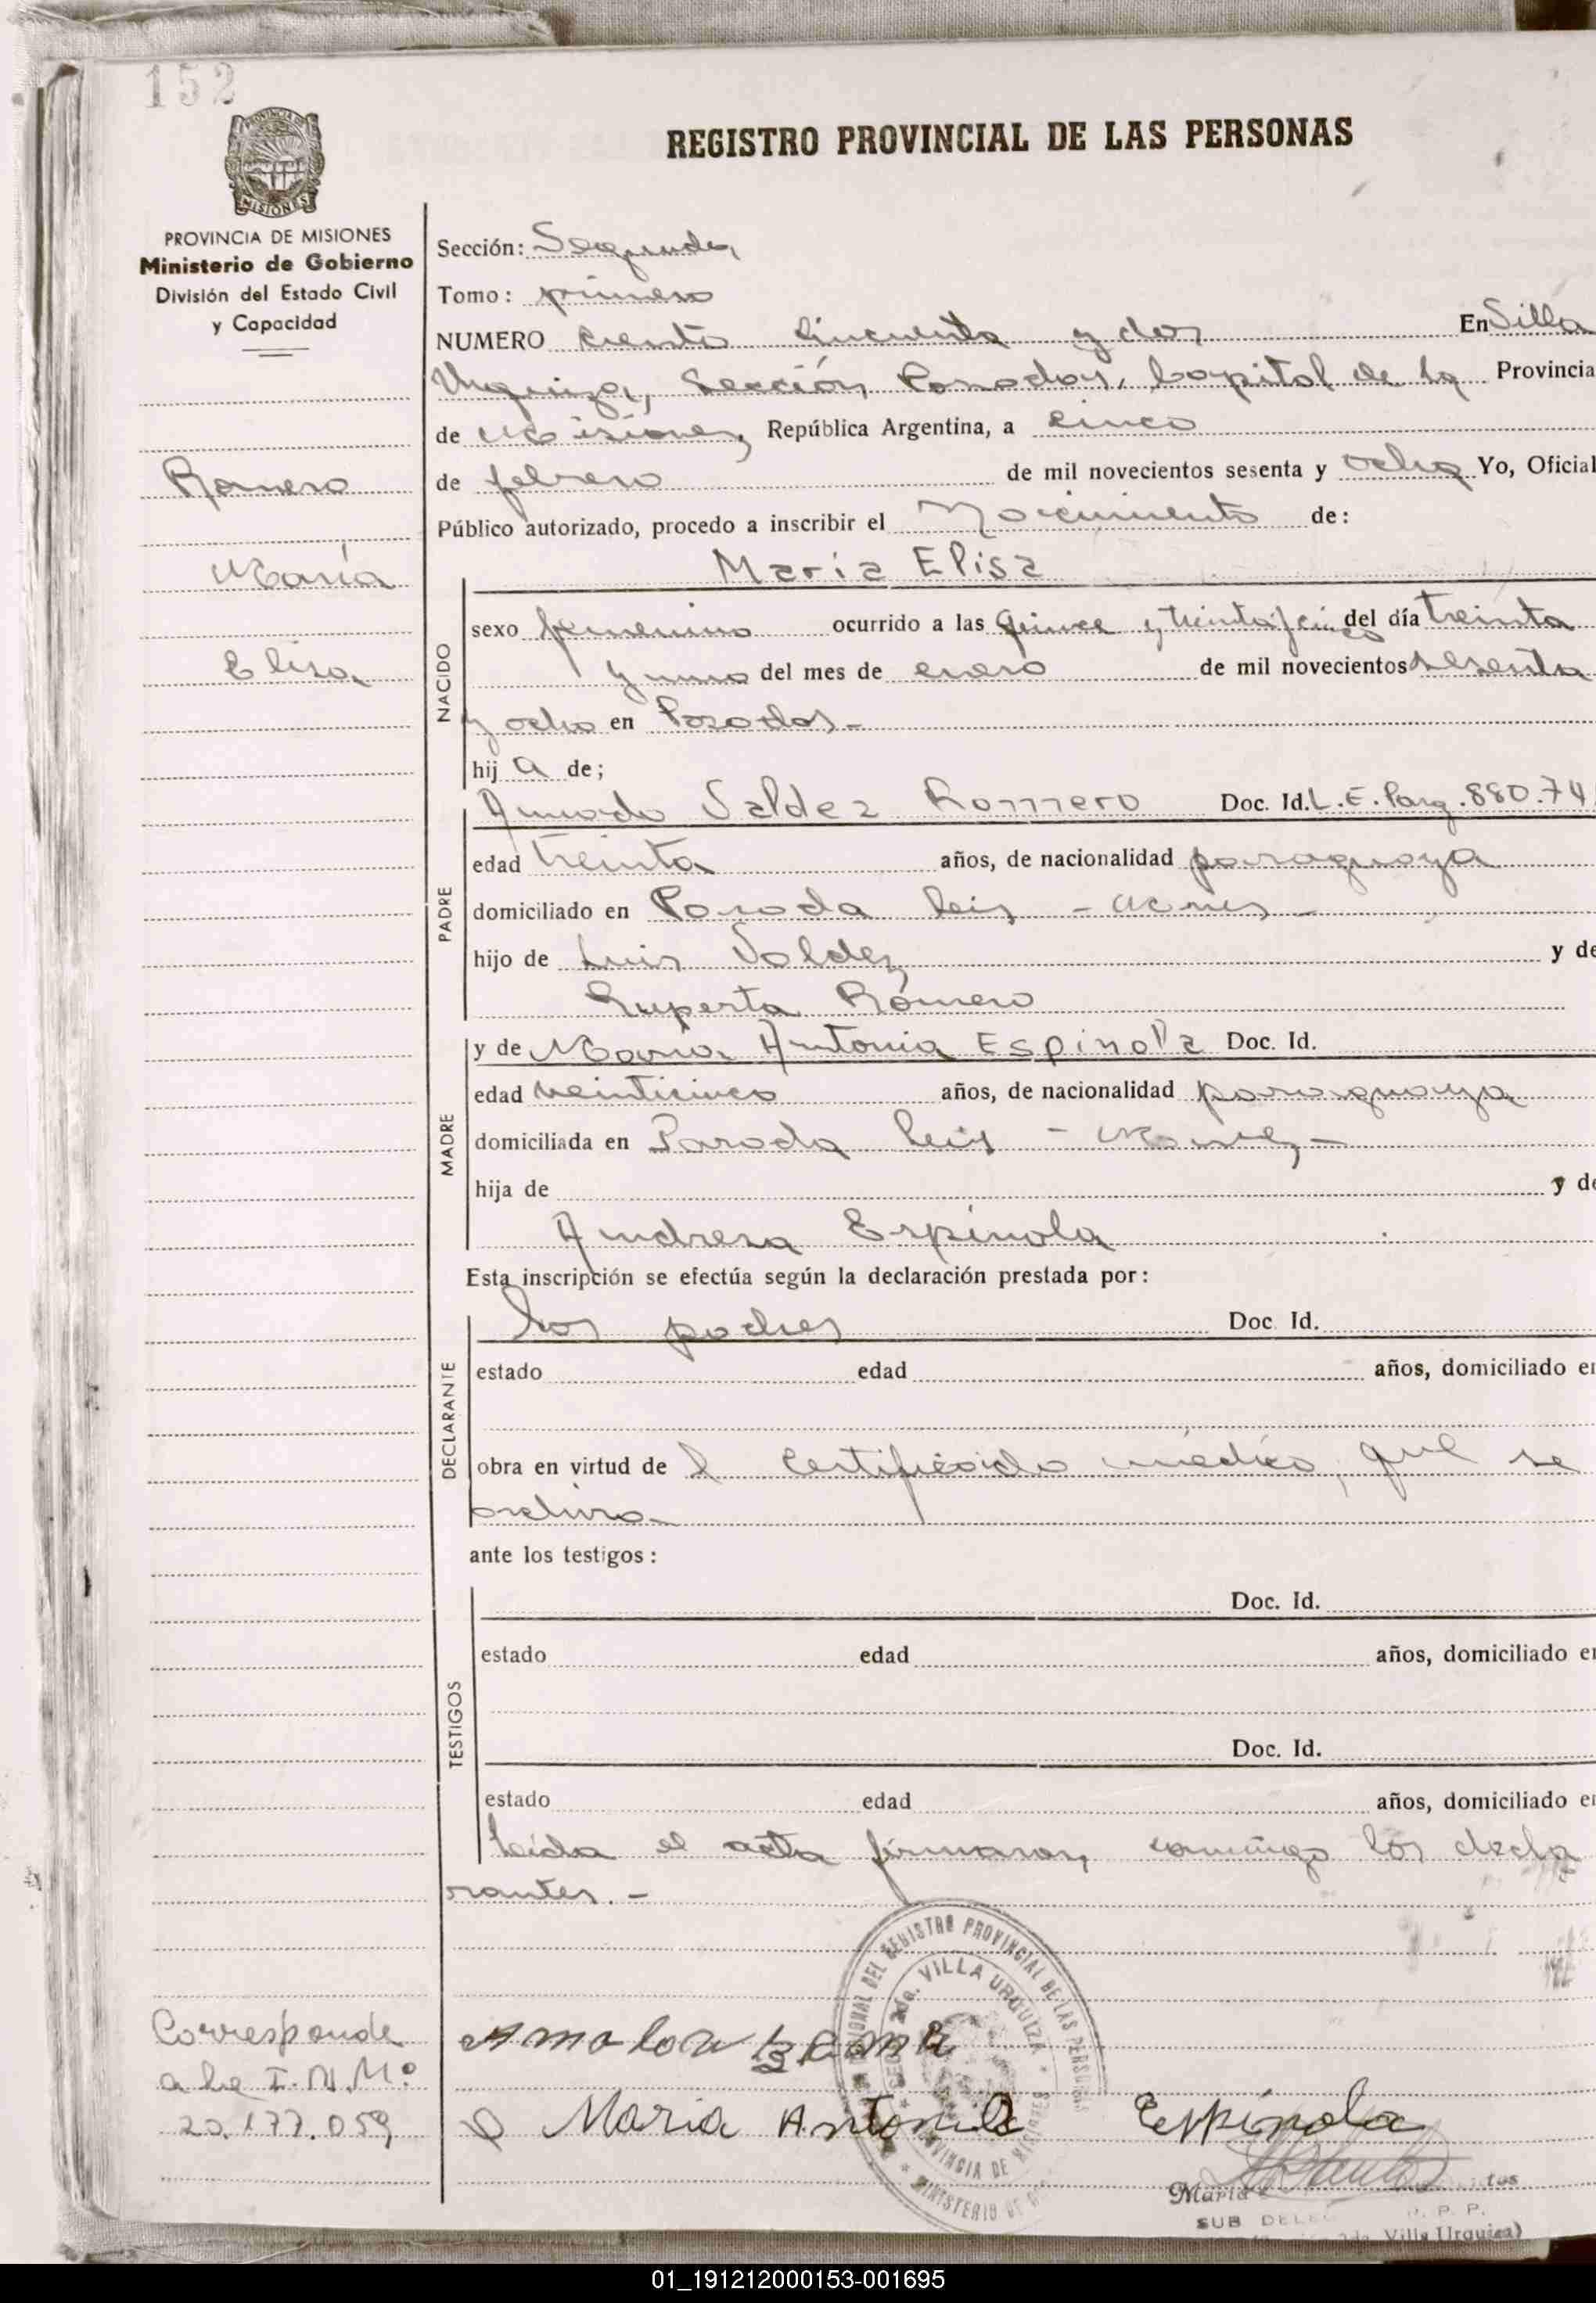 152
REGISTRO PROVINCIAL DE LAS PERSONAS
PROVINCIA DE MISIONES
Ministerio de Gobierno
División del Estado Civil
y Capacidad
Romero
María
Elisa
Sección: Segunda
Tomo: primero
NUMERO ciento cincuenta y dos En Villa
Urquiza, Sección Posadas, Capital de la Provincia
de Misiones, República Argentina, a cinco
de febrero de mil novecientos sesenta y ocho Yo, Oficial
Público autorizado, procedo a inscribir el Nacimiento de:
María Elisa
NACIDO
sexo femenino ocurrido a las quince y treinta y cinco del día treinta
y uno del mes de enero de mil novecientos sesenta
y ocho en Posadas.-
hij a de;
PADRE
Valdez Romero Doc. Id. L.E. Parg. 880.74
edad treinta años, de nacionalidad paraguaya
domiciliado en Posada
hijo de Luis Valdez y de
Ruperta Romero
MADRE
y de María Antonia Espinola Doc. Id.
edad veinticinco años, de nacionalidad paraguaya
domiciliada en Parada
hija de y de
Andresa Espinola
Esta inscripción se efectúa según la declaración prestada por:
DECLARANTE
los padres Doc. Id.
estado edad años, domiciliado en
obra en virtud de l certificado médico, que se
archiva.-
ante los testigos:
TESTIGOS
Doc. Id.
estado edad años, domiciliado en
Doc. Id.
estado edad años, domiciliado en
leída el acta firmaron conmigo los decla
rantes.-
DEL REGISTRO PROVINCIAL DE LAS PERSONAS
VILLA URQUIZA
Corresponde
a la I.N.M.º
20.177.059
María Antonia Espínola
María
SUB DELEG
Villa Urquiza)
01_191212000153-001695